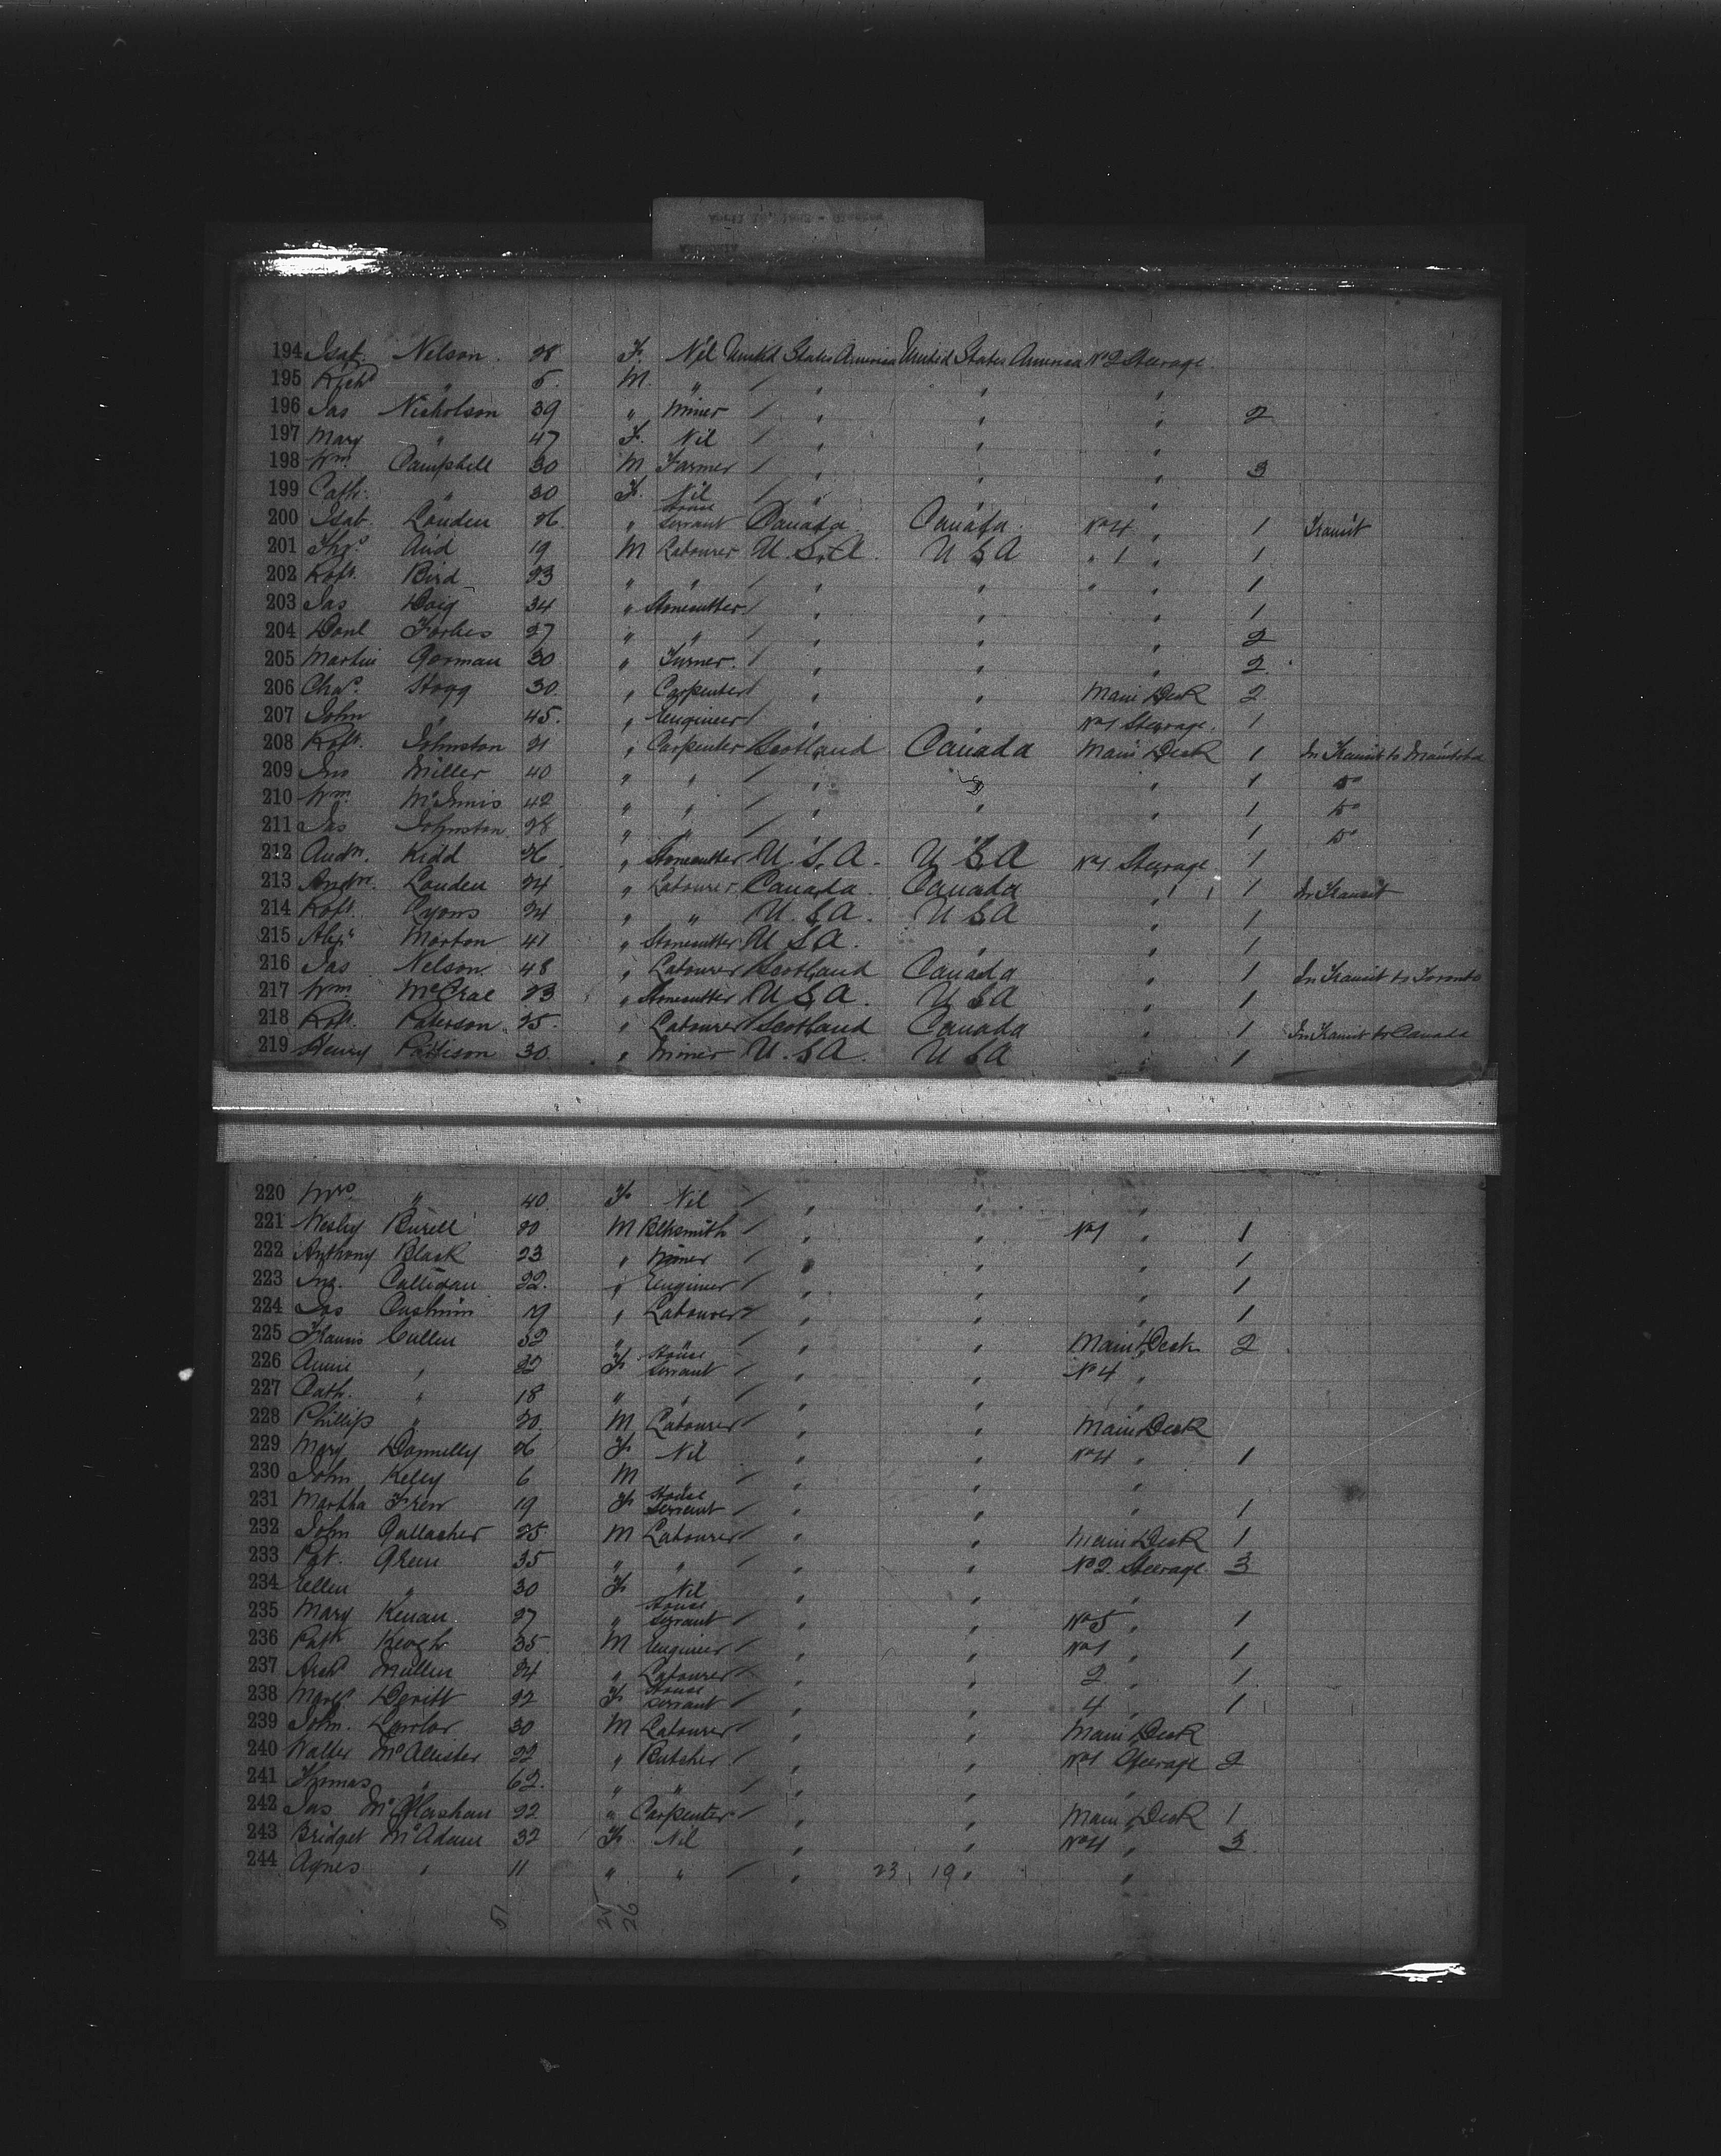 194 Isab. Nelson. 28 F. Nil United States America United States America No 2 Steerage
195 Richd " 5. M. " / " " "
196 Jas Nicholson 39 " Miner / " " " 2
197 Mary " 47 F. Nil / " " "
198 Wm. Campbell 30 M Farmer / " " " 3
199 Cath. " 30 F. Nil / " " "
200 Isab. Louden 26 " House Servant Canada Canada No 4 " 1 Transit
201 Thos. Auld 19 M Labourer U.S.A. U S A " 1 " 1
202 Robt. Bird 23 " " / " " " " 1
203 Jas Doig 34 " Stonecutter / " " " 1
204 Donl Forbes 27 " " / " " " 2
205 Martin Gorman 30 " Turner. / " " " 2
206 Chas. Hogg 30. " Carpenter / " " Main Deck 2
207 John " 45. " Engineer / " " No 1 Steerage. 1
208 Robt. Johnston 21 " Carpenter Scotland Canada Main Deck 1 In Transit to Manitoba
209 Jno Miller 40 " " / " " " 1 Do
210 Wm. McInnis 42 " " / " " " 1 Do
211 Jas Johnston 28 " " / " " " 1 Do
212 Andw. Kidd 26 " Stonecutter U.S.A. U S A No 1 Steerage 1
213 Andw. Louden 24 " Labourer Canada. Canada " 1 In Transit
214 Robt. Lyons 24 " " U.S.A. U S A " 1
215 Alexr Morton 41 " Stonecutter U S A. " " 1
216 Jas Nelson 48 " Labourer Scotland Canada " 1 In Transit to Toronto
217 Wm. McCrae 23 " Stonecutter U S A. U S A " 1
218 Robt. Paterson 25. " Labourer Scotland Canada " 1 In Transit to Canada
219 Henry Pattison 30. " Miner U.S.A. U S A " 1
220 Mrs " 40. F. Nil / " " "
221 Wesley Burell 20 M Blksmith / " " No 1 " 1
222 Anthony Black 23 " Miner / " " " 1
223 Jno. Calligan 22. " Engineer / " " " 1
224 Jas 19 " Labourer / " " " 1
225 Francis Cullen 52 " " / " " Main Deck 2
226 Annie " 22 F. House Servant / " " No 4 "
227 Cath. " 18 " " / " " "
228 Phillip " 20. M Labourer / " " Main Deck
229 Mary Donnelly 26 F. Nil " " No 4 " 1
230 John Kelly 6 M / " " "
231 Martha Frew 19 F. House Servant / " " " 1
232 John Gallacher 25 M Labourer / " " Main Deck 1
233 Pat. Green 35 " " / " " No 2 Steerage 3
234 Ellen " 30 F. Nil " " "
235 Mary Kenan 27 " House Servant / " " No 5 " 1
236 Patk Keogh 35 M Engineer / " " No 1 " 1
237 Archd Mullen 24 " Labourer / " " 2 " 1
238 Margt Devitt 22 F. House Servant / " " 4 " 1
239 John. Lawlor 30 M Labourer / " " Main Deck
240 Walter McAllister 22 " Butcher / " " No 1 Steerage 2
241 Thomas " 62. " " / " " "
242 Jas McGlashan 22 " Carpenter / " " Main Deck 1
243 Bridget McAdam 32 F. Nil " " No 4 " 3
244 Agnes " 11 " " / " 23 19 " "
51 25 26